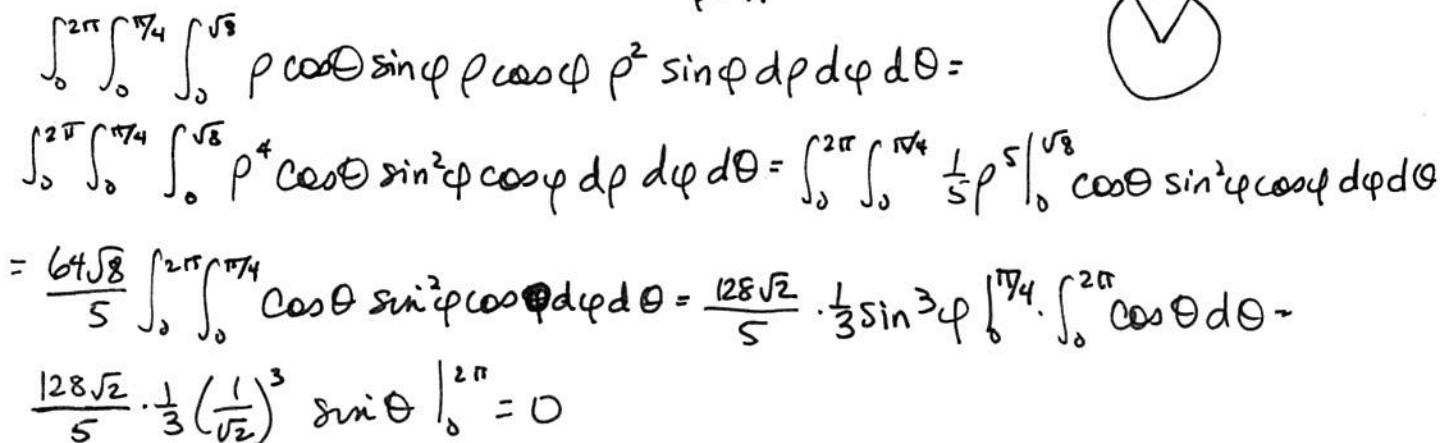 ∫₀^{2π} ∫₀^{π/4} ∫₀^{√8} ρ cosθ sinφ ρ cosφ ρ² sinφ dρ dφ dθ =
∫₀^{2π} ∫₀^{π/4} ∫₀^{√8} ρ⁴ cosθ sin²φ cosφ dρ dφ dθ = ∫₀^{2π} ∫₀^{π/4} 1/5 ρ⁵ |₀^{√8} cosθ sin²φ cosφ dφ dθ
= 64√8/5 ∫₀^{2π} ∫₀^{π/4} cosθ sin²φ cosφ dφ dθ = 128√2/5 · 1/3 sin³φ |₀^{π/4} · ∫₀^{2π} cosθ dθ -
128√2/5 · 1/3 (1/√2)³ sinθ |₀^{2π} = 0